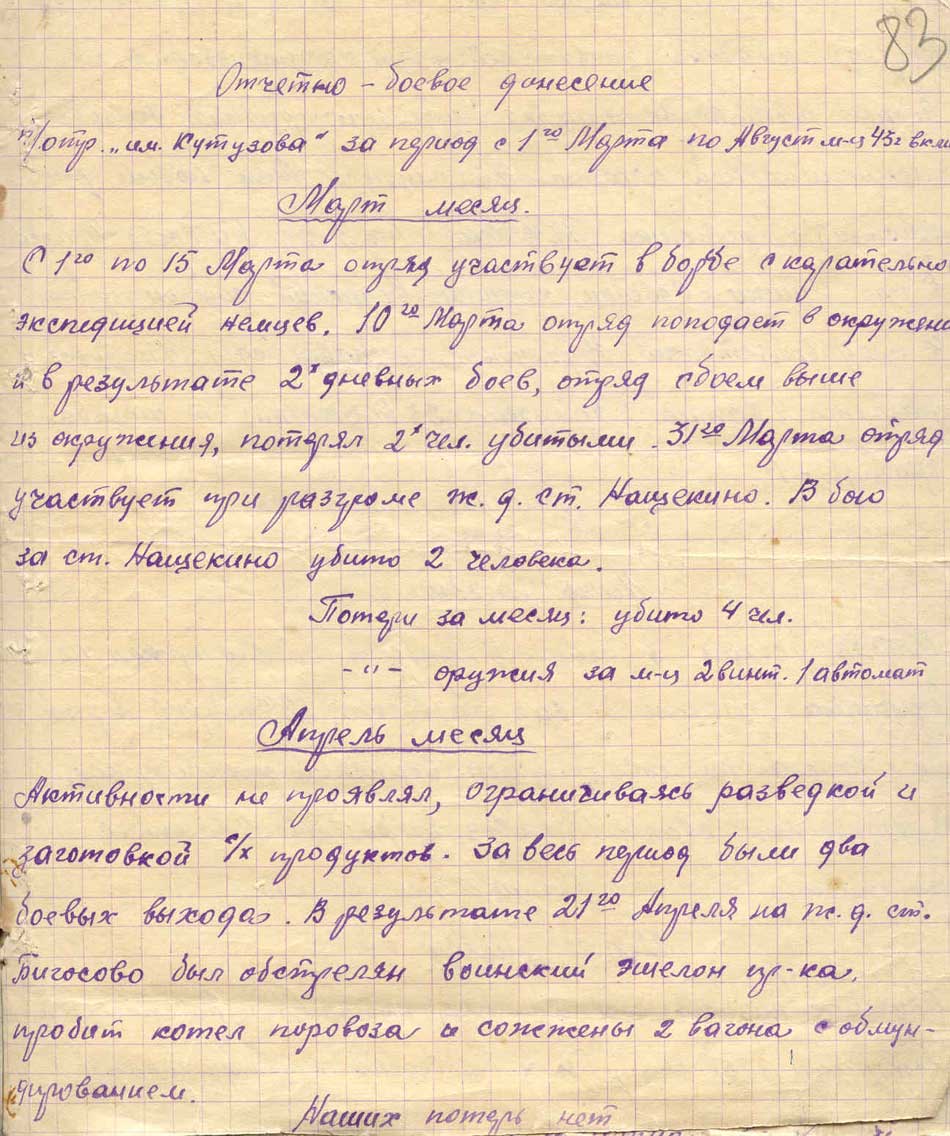 83
Отчетно – боевое донесение
п/отр. „им. Кутузова“ за период с 1го Марта по Август м-ц 43г вклю
Март месяц.
С 1го по 15 Марта отряд участвует в борбе с карательно
экспедицией немцев. 10го Марта отряд поподает в окружени
и в результате 2х дневных боев, отряд с боем выше
из окружения, потерял 2х чел. убитыми. 31го Марта отряд
участвует при разгроме ж. д. ст. Нащекино. В бою
за ст. Нащекино убито 2 человека.
Потери за месяц: убито 4 чел.
-"- оружия за м-ц 2 винт. 1 автомат
Апрель месяц
Активности не проявлял, ограничиваясь разведкой и
заготовкой с/х продуктов. За весь период были два
боевых выхода. В результате 21го Апреля на ж. д. ст.
Бигосово был обстрелян воинский эшелон пр-ка,
пробит котел поровоза и сожжены 2 вагона с обмун-
дированием.
Наших потерь нет